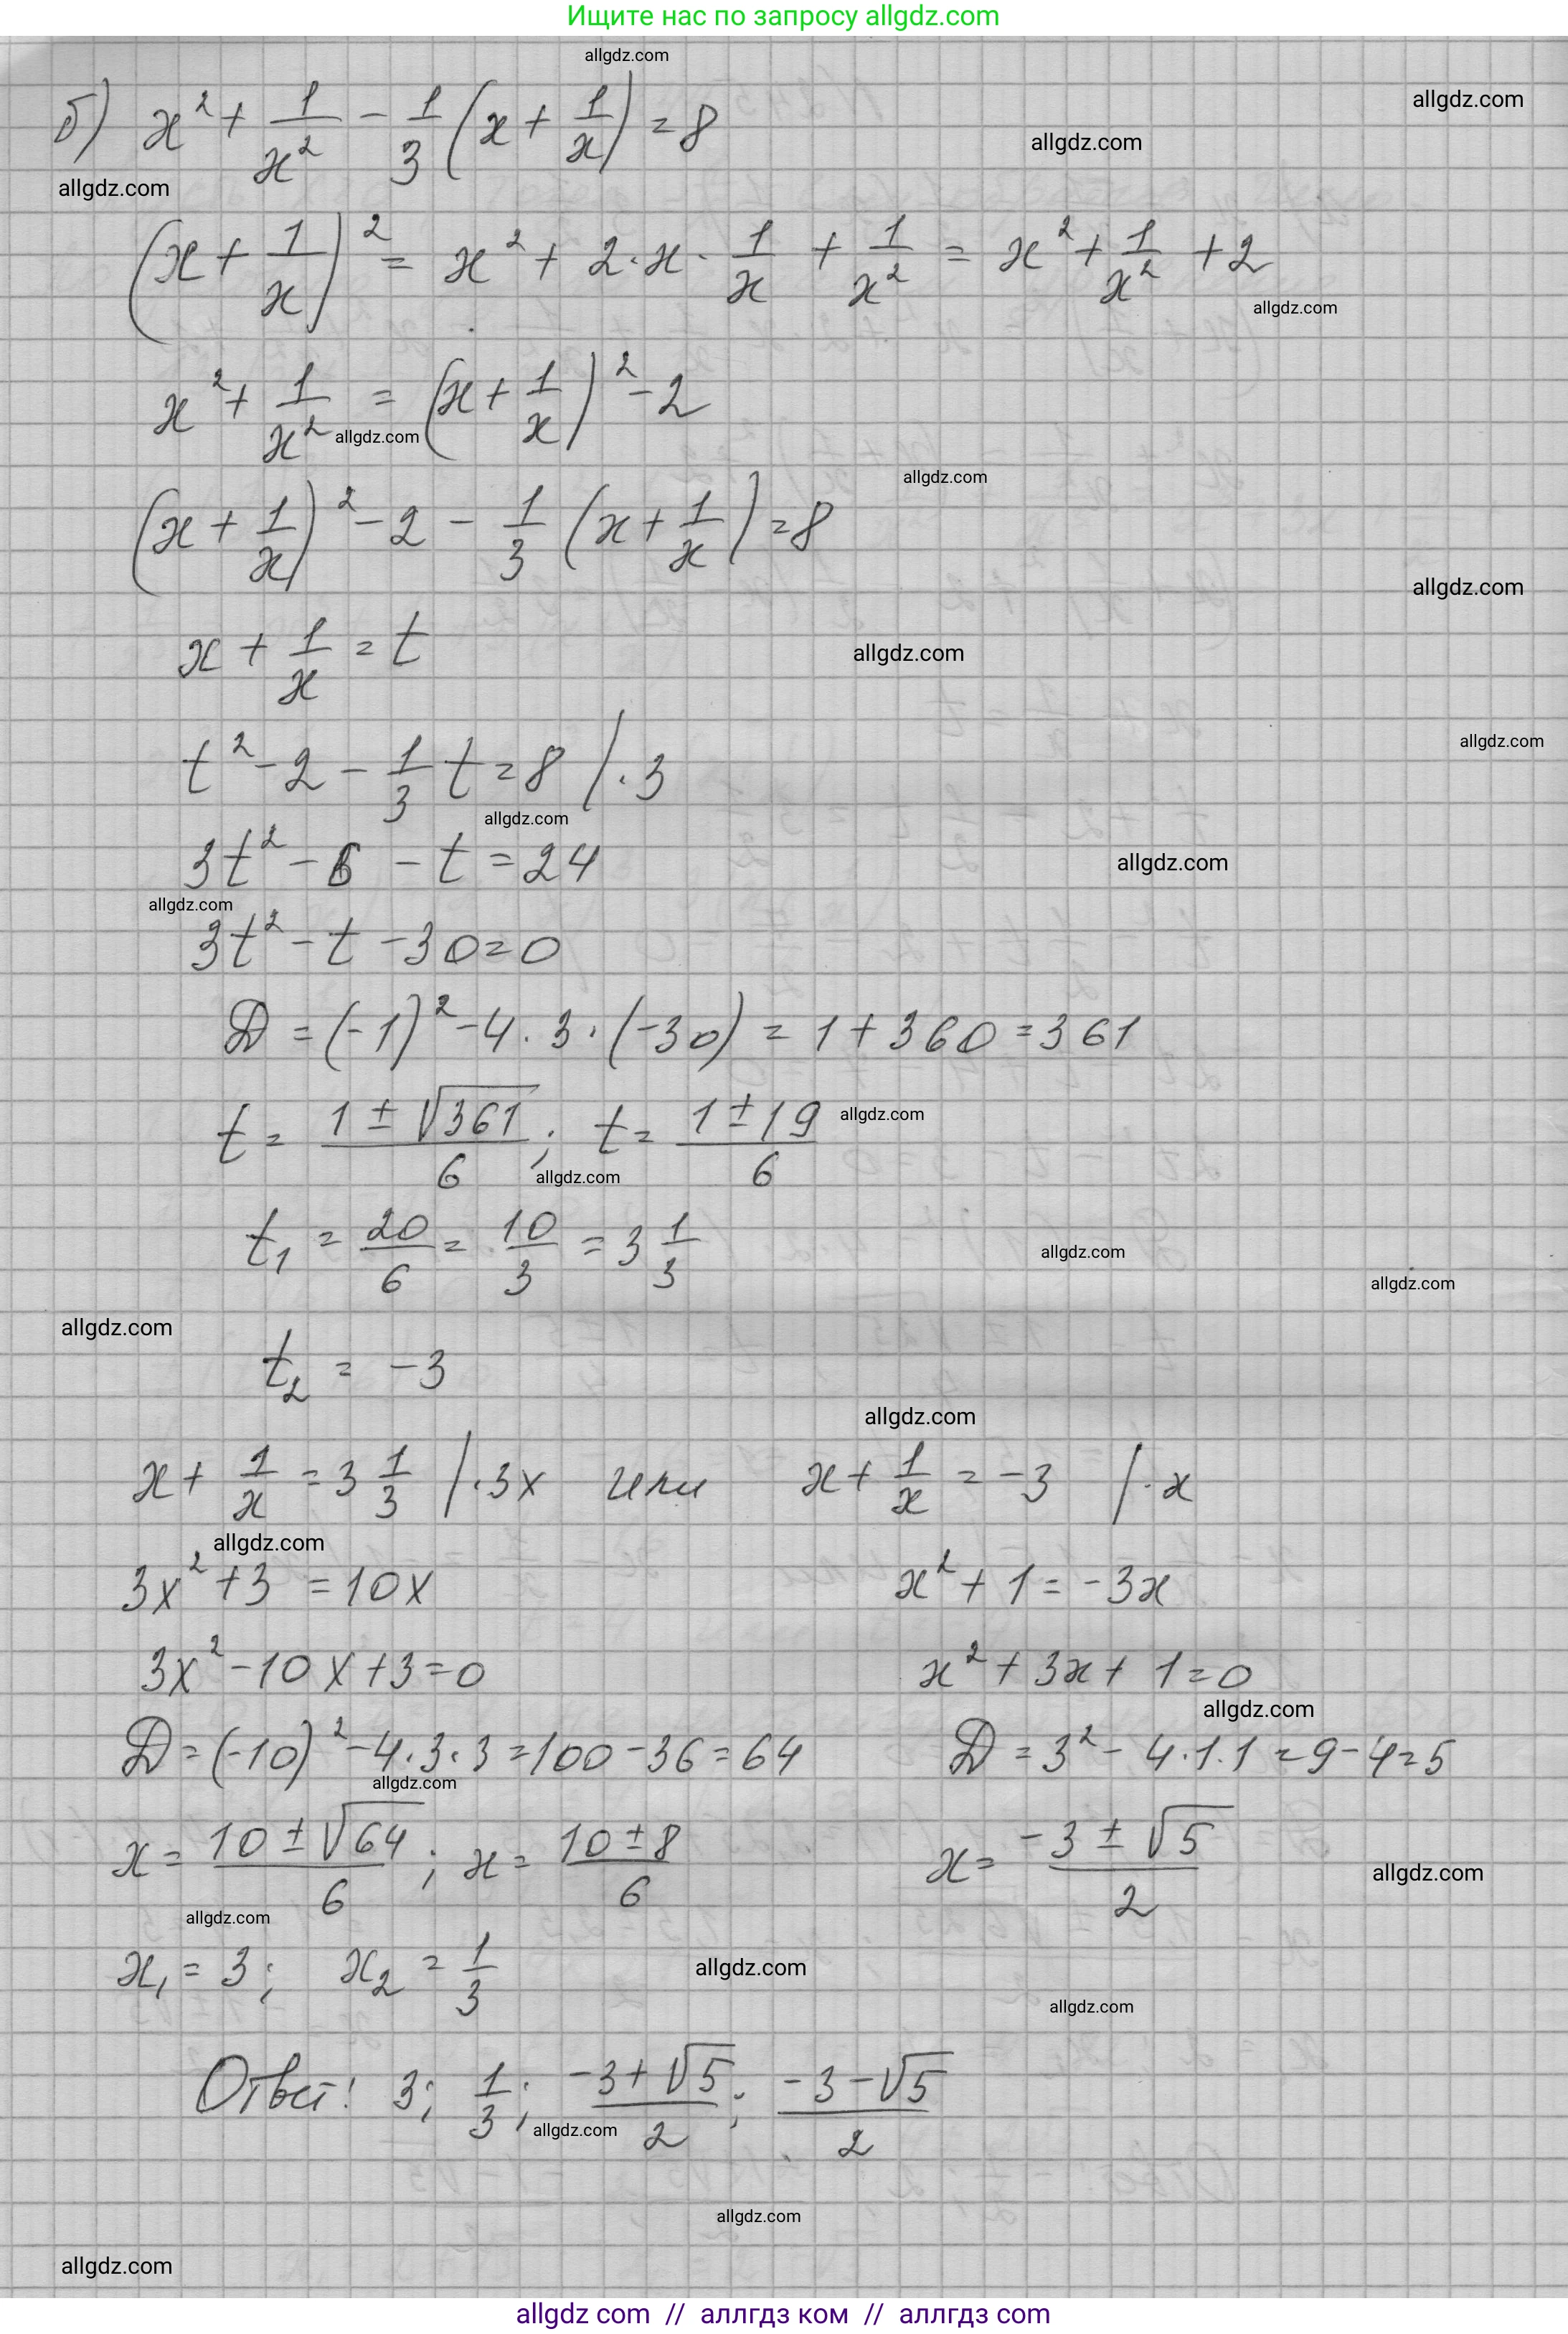 Ищите нас по запросу allgdz.com
allgdz.com
allgdz.com
б) x² + 1/x² - 1/3 (x + 1/x) = 8
allgdz.com
allgdz.com
(x + 1/x)² = x² + 2·x·1/x + 1/x² = x² + 1/x² + 2
allgdz.com
x² + 1/x² = (x + 1/x)² - 2
allgdz.com
allgdz.com
(x + 1/x)² - 2 - 1/3 (x + 1/x) = 8
allgdz.com
x + 1/x = t
allgdz.com
allgdz.com
t² - 2 - 1/3 t = 8 /·3
allgdz.com
3t² - 6 - t = 24
allgdz.com
allgdz.com
3t² - t - 30 = 0
D = (-1)² - 4·3·(-30) = 1 + 360 = 361
t = (1 ± √361)/6; t = (1 ± 19)/6
allgdz.com
allgdz.com
t₁ = 20/6 = 10/3 = 3 1/3
allgdz.com
allgdz.com
allgdz.com
t₂ = -3
allgdz.com
x + 1/x = 3 1/3 /·3x или x + 1/x = -3 /·x
allgdz.com
3x² + 3 = 10x x² + 1 = -3x
3x² - 10x + 3 = 0 x² + 3x + 1 = 0
allgdz.com
D = (-10)² - 4·3·3 = 100 - 36 = 64 D = 3² - 4·1·1 = 9 - 4 = 5
allgdz.com
x = (10 ± √64)/6; x = (10 ± 8)/6 x = (-3 ± √5)/2
allgdz.com
allgdz.com
x₁ = 3; x₂ = 1/3
allgdz.com
allgdz.com
Ответ: 3; 1/3; (-3 + √5)/2; (-3 - √5)/2
allgdz.com
allgdz.com
allgdz.com
allgdz com // аллгдз ком // аллгдз com